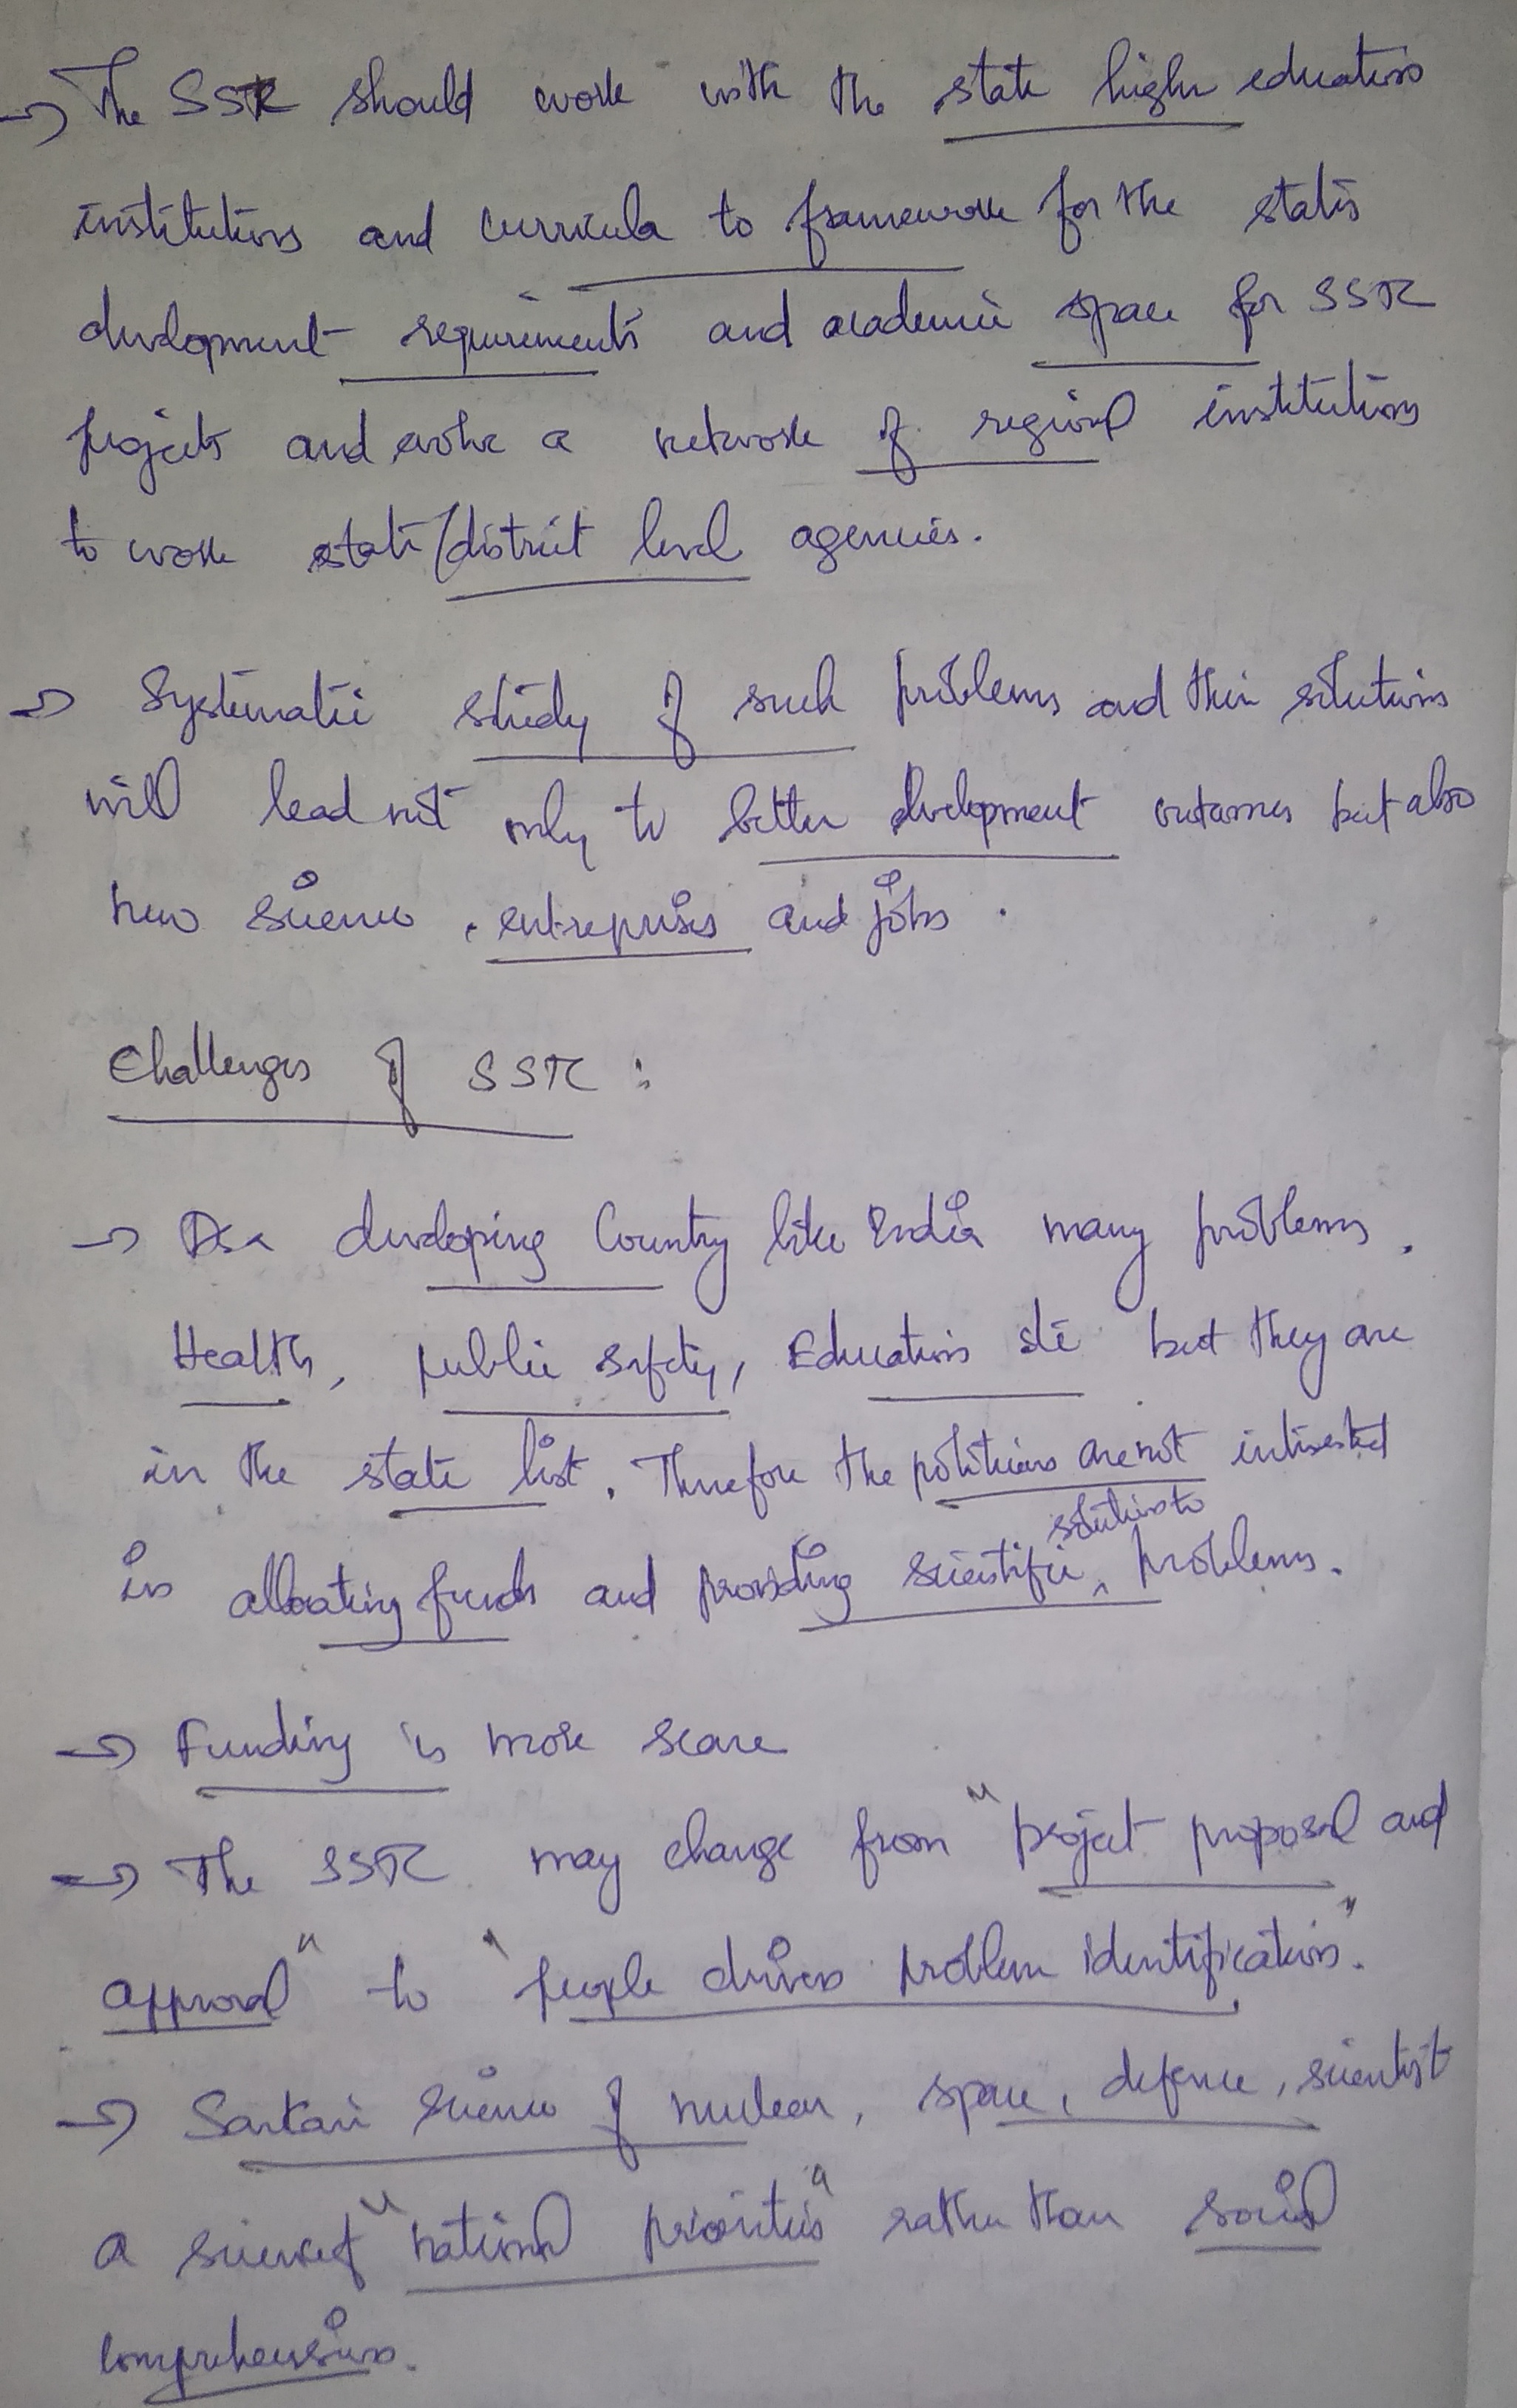 → The SSR should work with the state higher education
institutions and curricula to framework for the state's
development requirements and academic space for SSR
projects and evolve a network of regional institutions
to work state/district level agencies.
→ Systematic study of such problems and their solutions
will lead not only to better development outcomes but also
new science, entreprises and jobs.
Challenges of SSR :
→ As a developing Country like India many problems.
Health, public safety, Education etc but they are
in the state list. Therefore the politicians are not interested
in allocating funds and providing scientific solutions to problems.
→ Funding is more scare
→ The SSR may change from "project proposal and
approval" to "people driven problem identification".
→ Sarkari science of nuclear, space, defence, scientist
a science of "national priorities" rather than social
comprehension.